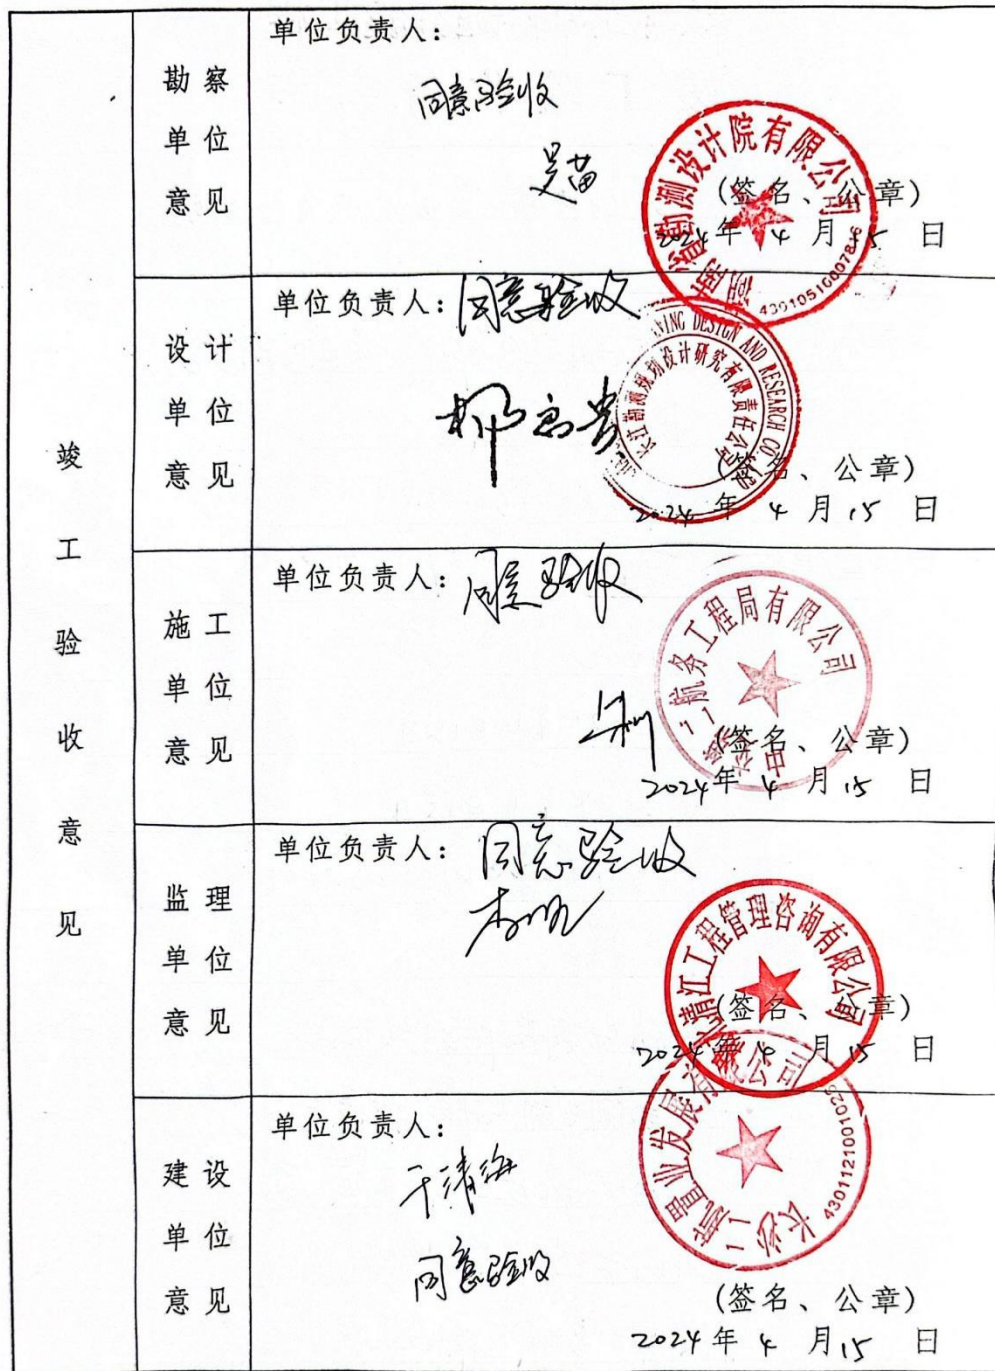 竣工验收意见
勘察单位意见
单位负责人：
同意验收
吴苗
湖南省勘测设计院有限公司
4301051600078
(签名、公章)
2024年 4 月 15 日
设计单位意见
单位负责人：同意验收
长江勘测规划设计研究有限责任公司
DESIGN AND RESEARCH CO.
(签名、公章)
2024 年 4 月 15 日
施工单位意见
单位负责人：同意验收
航务工程局有限公司
(签名、公章)
2024年 4 月 15 日
监理单位意见
单位负责人：同意验收
清江工程管理咨询有限公司
(签名、公章)
2024年 4 月 15 日
建设单位意见
单位负责人：
长沙二航置业发展有限公司
4301121001025
同意验收
(签名、公章)
2024年 4 月 15 日